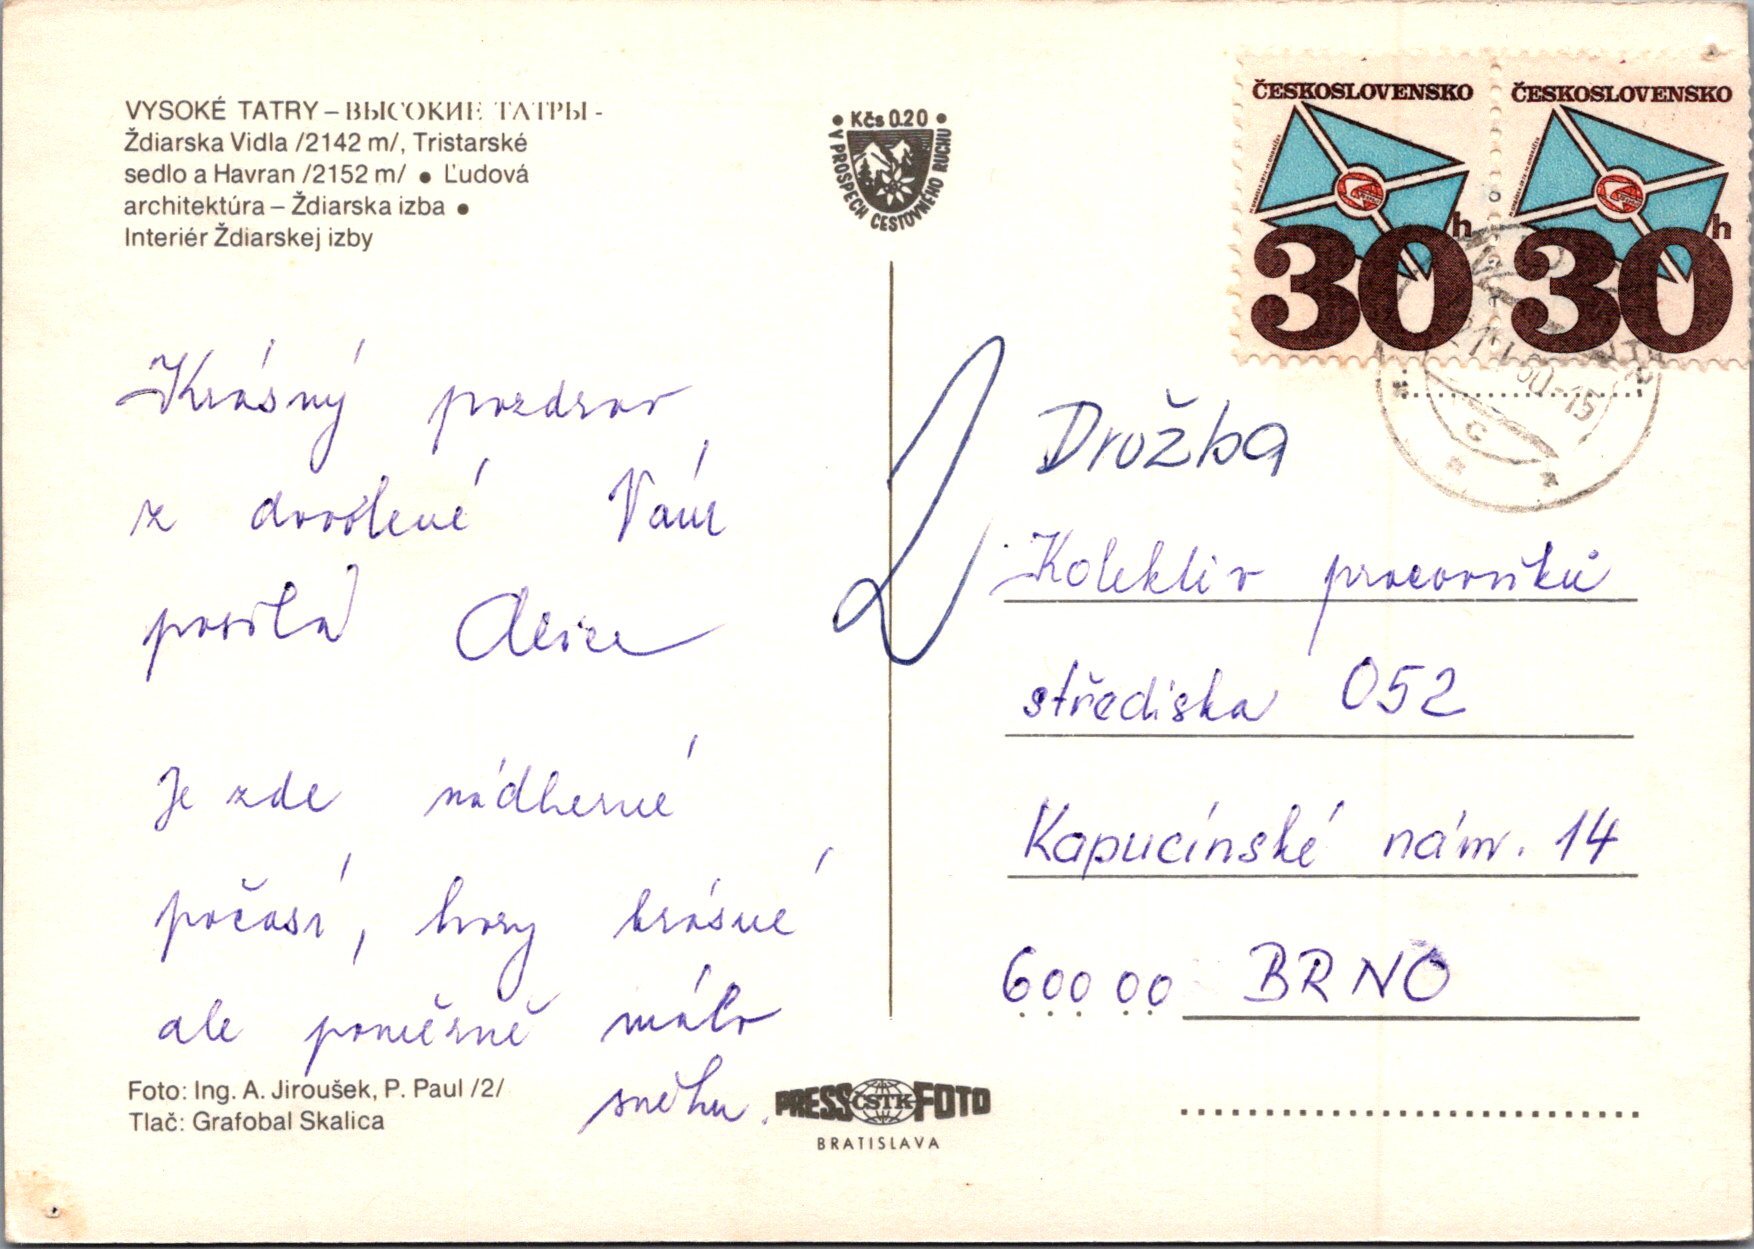 VYSOKÉ TATRY – ВЫСОКИЕ ТАТРЫ -
Ždiarska Vidla /2142 m/, Tristarské
sedlo a Havran /2152 m/ ● Ľudová
architektúra – Ždiarska izba ●
Interiér Ždiarskej izby
● Kčs 0.20 ●
V PROSPECH CESTOVNÉHO RUCHU
ČESKOSLOVENSKO
30h
ČESKOSLOVENSKO
30h
Krásný pozdrav
z dovolené Vám
posílá Alice
Je zde nádherné
počasí, hory krásné
ale poměrně málo
sněhu.
Družba
Kolektiv pracovníků
střediska 052
Kapucínské nám. 14
600 00 BRNO
Foto: Ing. A. Jiroušek, P. Paul /2/
Tlač: Grafobal Skalica
PRESS ČSTK FOTO
BRATISLAVA